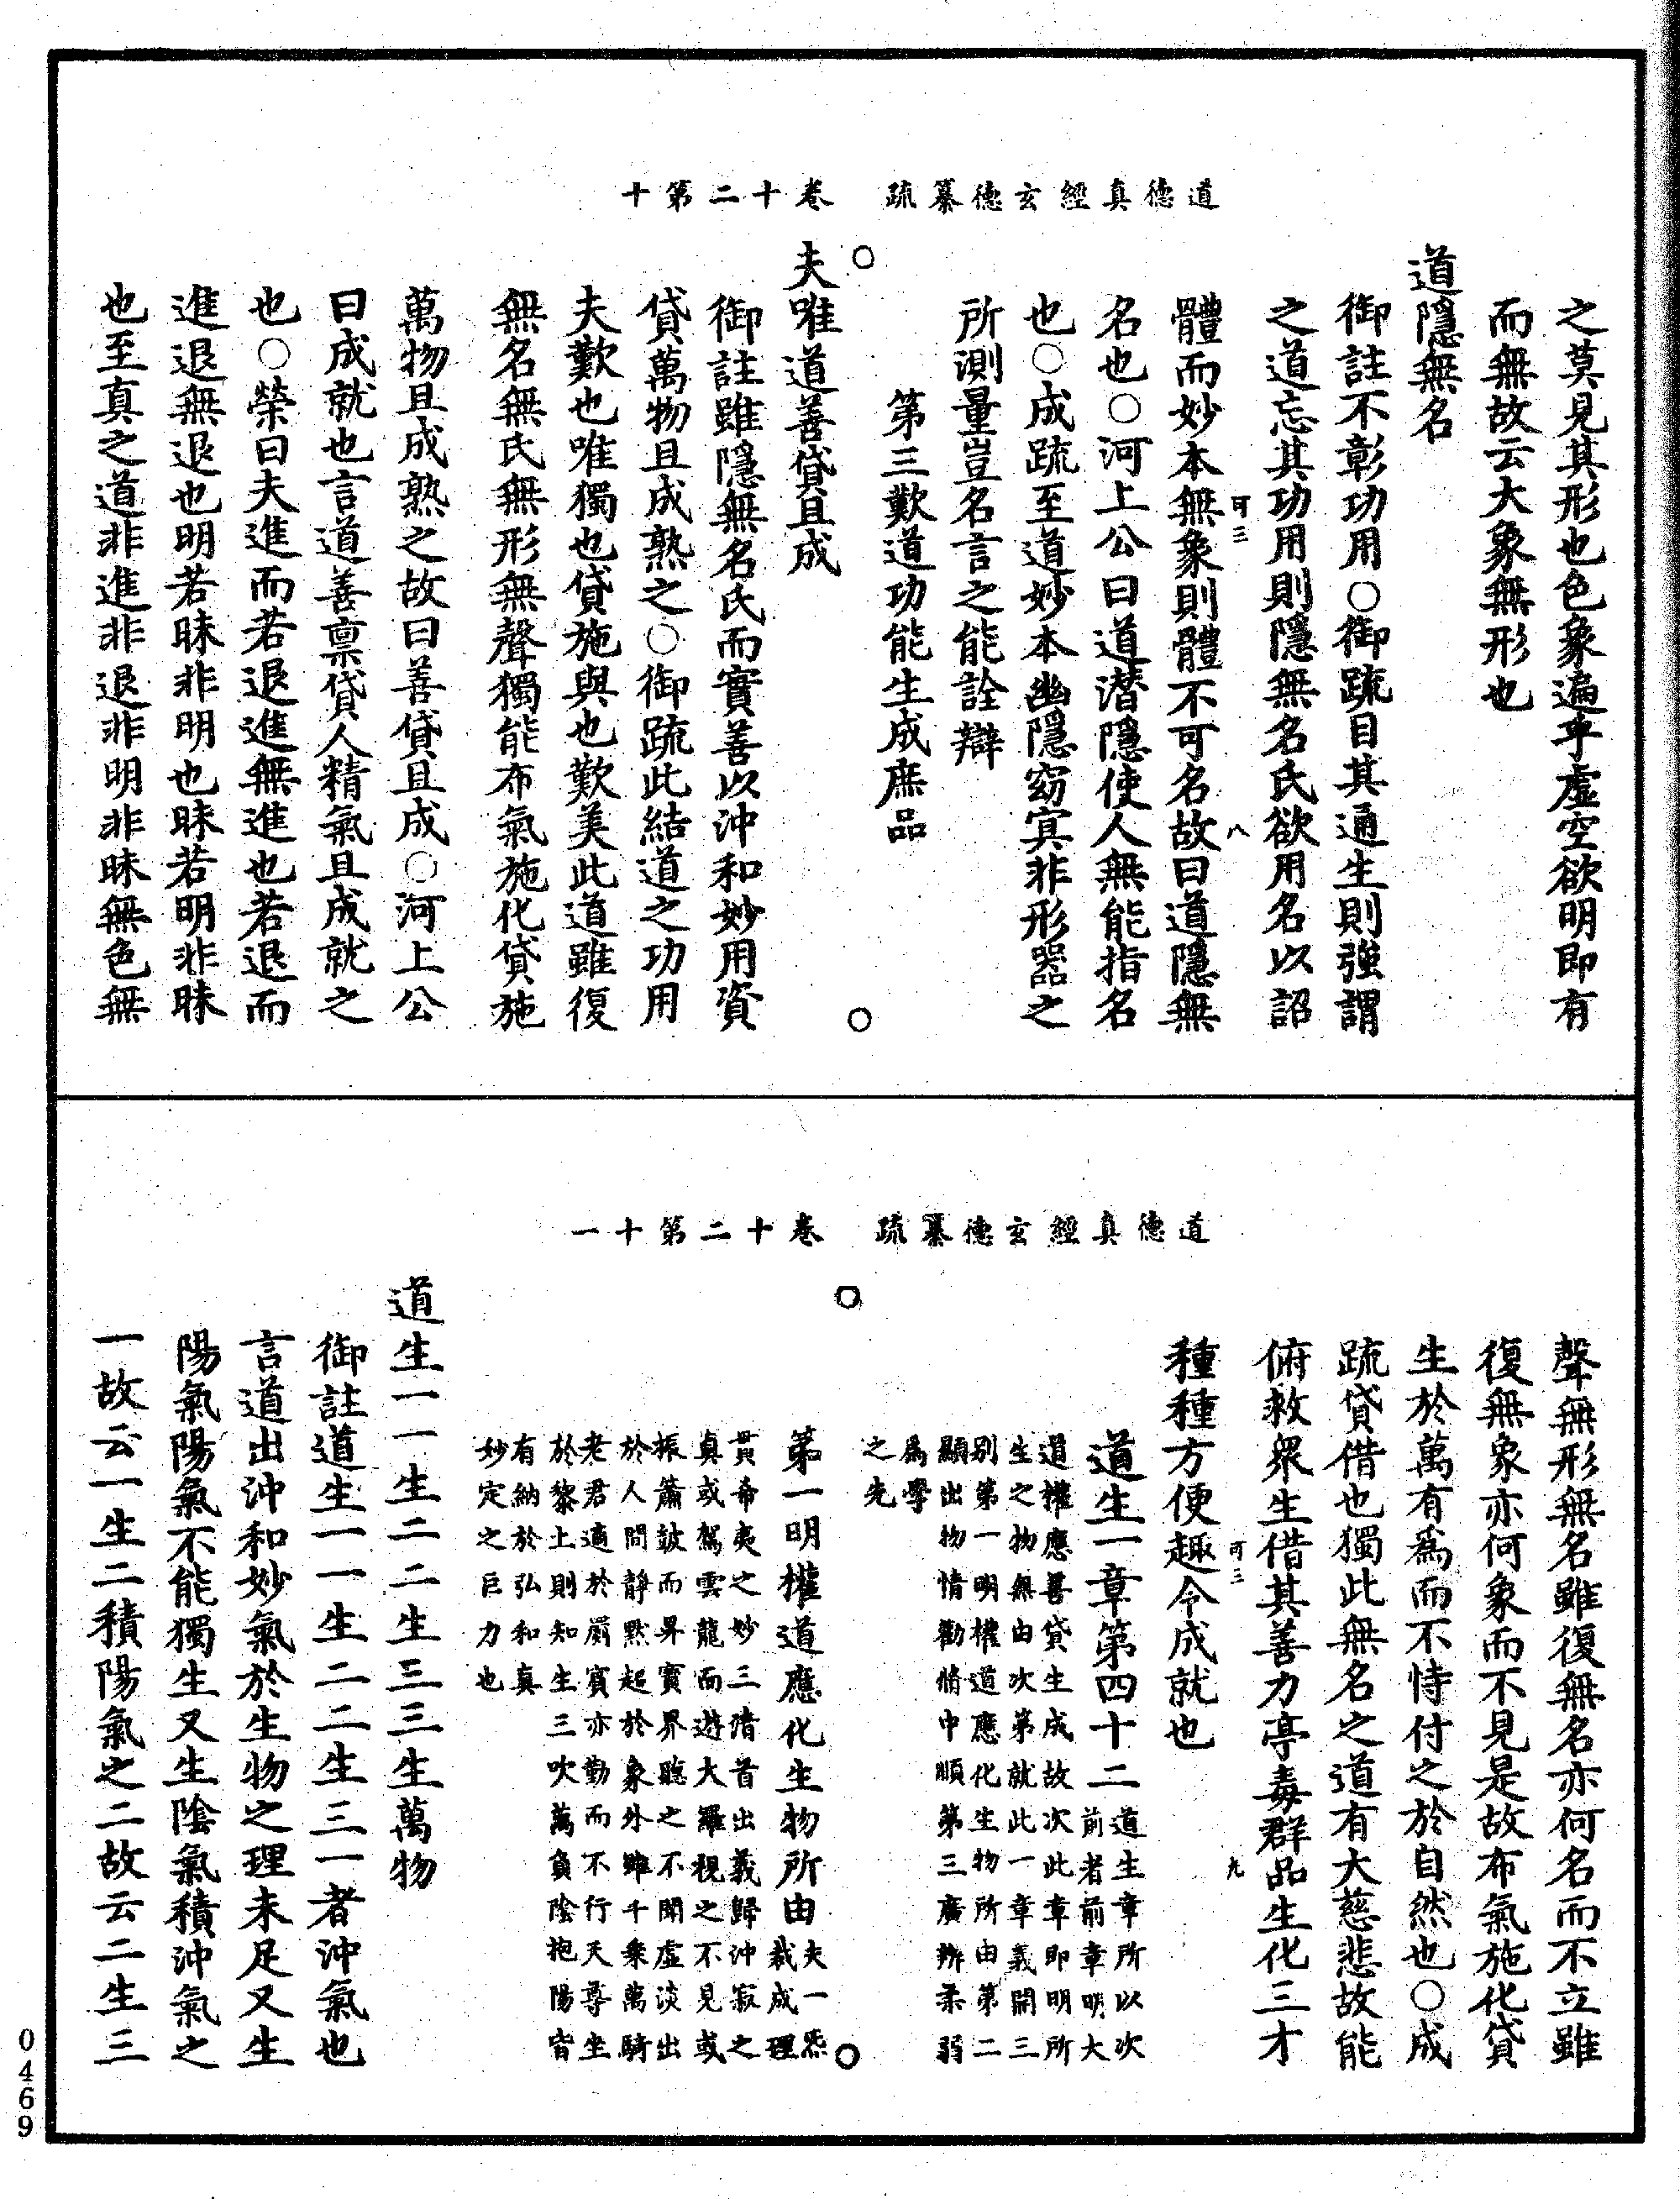 道德真經玄德纂疏　卷十二第十
之莫見其形也色象遍乎虛空欲明即有
而無故云大象無形也
道隱無名
御註不彰功用○御疏目其通生則強謂
之道忘其功用則隱無名氏欲用名以詔
體而妙本無象則體不可名故曰道隱無
可三　八
名也○河上公曰道潛隱使人無能指名
也○成疏至道妙本幽隱窈冥非形器之
所測量豈名言之能詮辯
第三歎道功能生成庶品
夫唯道善貸且成
御註雖隱無名氏而實善以沖和妙用資
貸萬物且成熟之○御疏此結道之功用
夫歎也唯獨也貸施與也歎美此道雖復
無名無氏無形無聲獨能布氣施化貸施
萬物且成熟之故曰善貸且成○河上公
曰成就也言道善稟貸人精氣且成就之
也○榮曰夫進而若退進無進也若退而
進退無退也明若昧非明也昧若明非昧
也至真之道非進非退非明非昧無色無
道德真經玄德纂疏　卷十二第十一
聲無形無名雖復無名亦何名而不立雖
復無象亦何象而不見是故布氣施化貸
生於萬有為而不恃付之於自然也○成
疏貸借也獨此無名之道有大慈悲故能
俯救眾生借其善力亭毒群品生化三才
可三　九
種種方便趣令成就也
道生一章第四十二
道生章所以次
前者前章明大
道權應善貸生成故次此章即明所
生之物無由次第就此一章義開三
別第一明權道應化生物所由第二
顯出物情勸脩中順第三廣辨柔弱
為學
之先
第一明權道應化生物所由
夫一炁
裁成理
貫希夷之妙三清首出義歸沖寂之
真或駕雲龍而遊大羅視之不見或
振簫鼓而昇寶界聽之不聞虛淡出
於人間靜默起於象外雖千乘萬騎
老君適於罽賓亦勤而不行天尊坐
於黎土則知生三吹萬負陰抱陽皆
有納於弘和真
妙定之巨力也
道生一一生二二生三三生萬物
御註道生一一生二二生三一者沖氣也
言道出沖和妙氣於生物之理未足又生
陽氣陽氣不能獨生又生陰氣積沖氣之
一故云一生二積陽氣之二故云二生三
0469